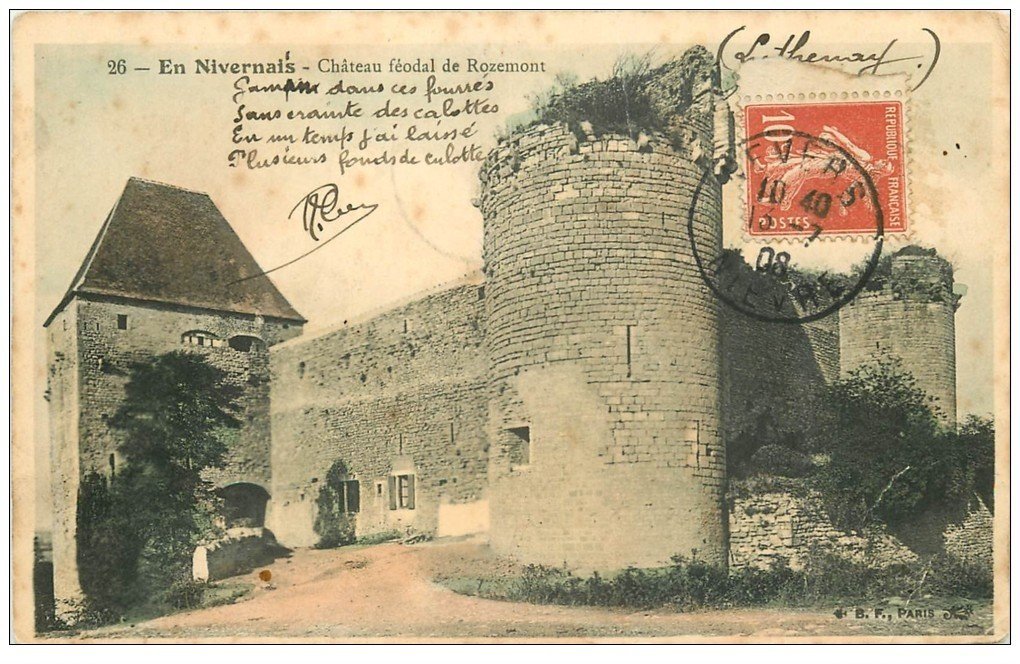 26 — En Nivernais - Château féodal de Rozemont
Gamin dans ces fourrés
Sans crainte des calottes
En un temps j'ai laissé
Plusieurs fonds de culotte
(Luthenay)
10
REPUBLIQUE FRANÇAISE
POSTES
NEVERS
10 40
13 -7
08
NIEVRE
B. F., PARIS